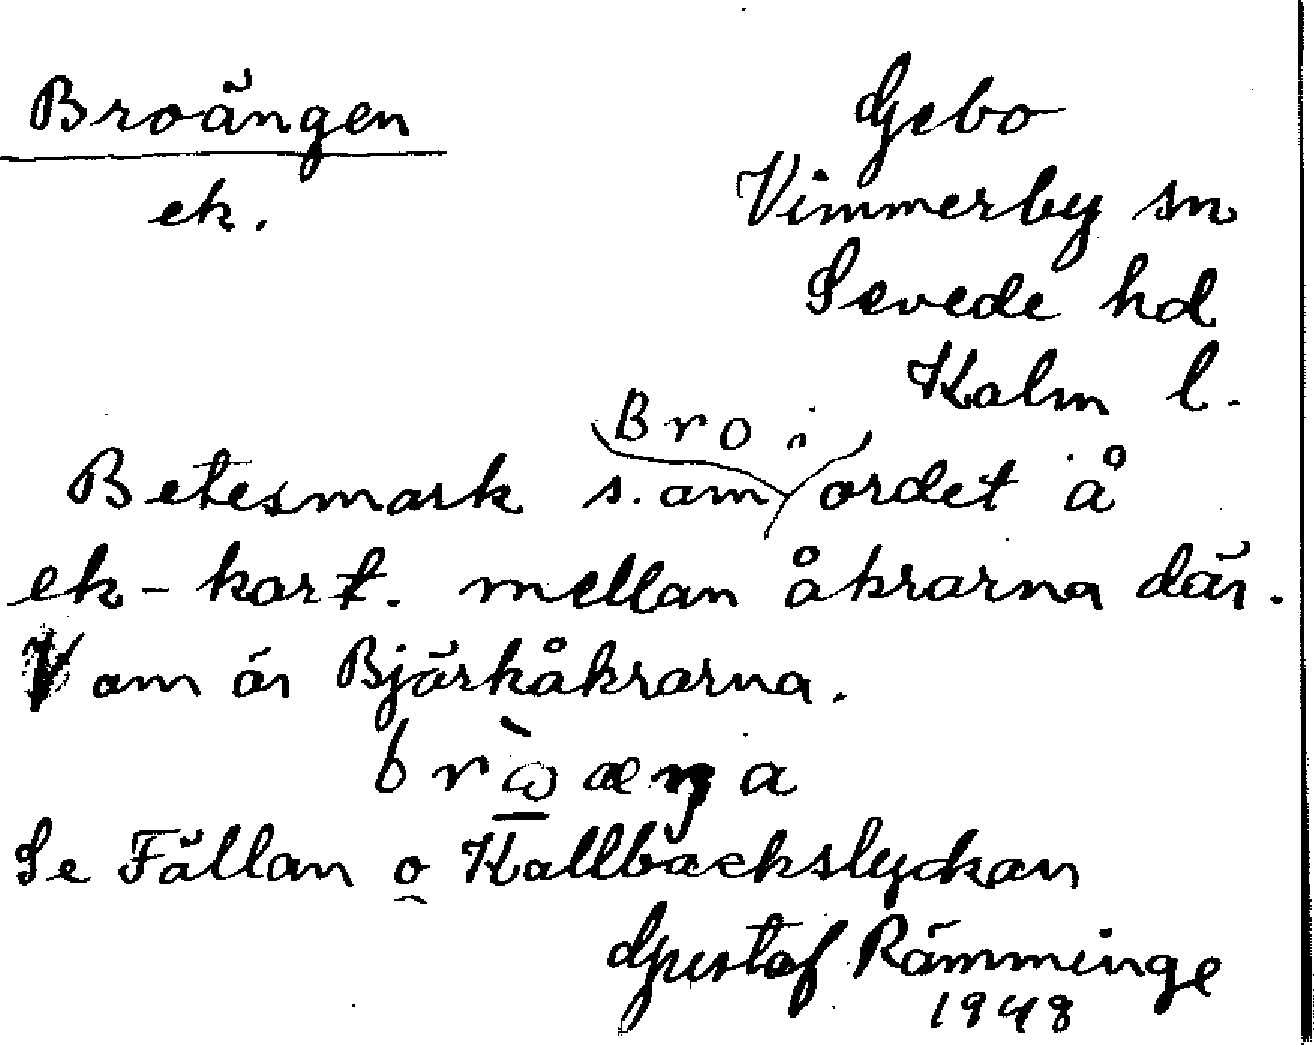 Broängen
ek.
Gebo
Vimmerby sn
Sevede hd
Kalm l.
Betesmark s. om Bro i ordet å
ek-kart. mellan åkrarna där.
V om är Bjärkåkrarna.
bròæŋa
Se Fällan o Kallbäckslyckan
Gustaf Rämminge
1948